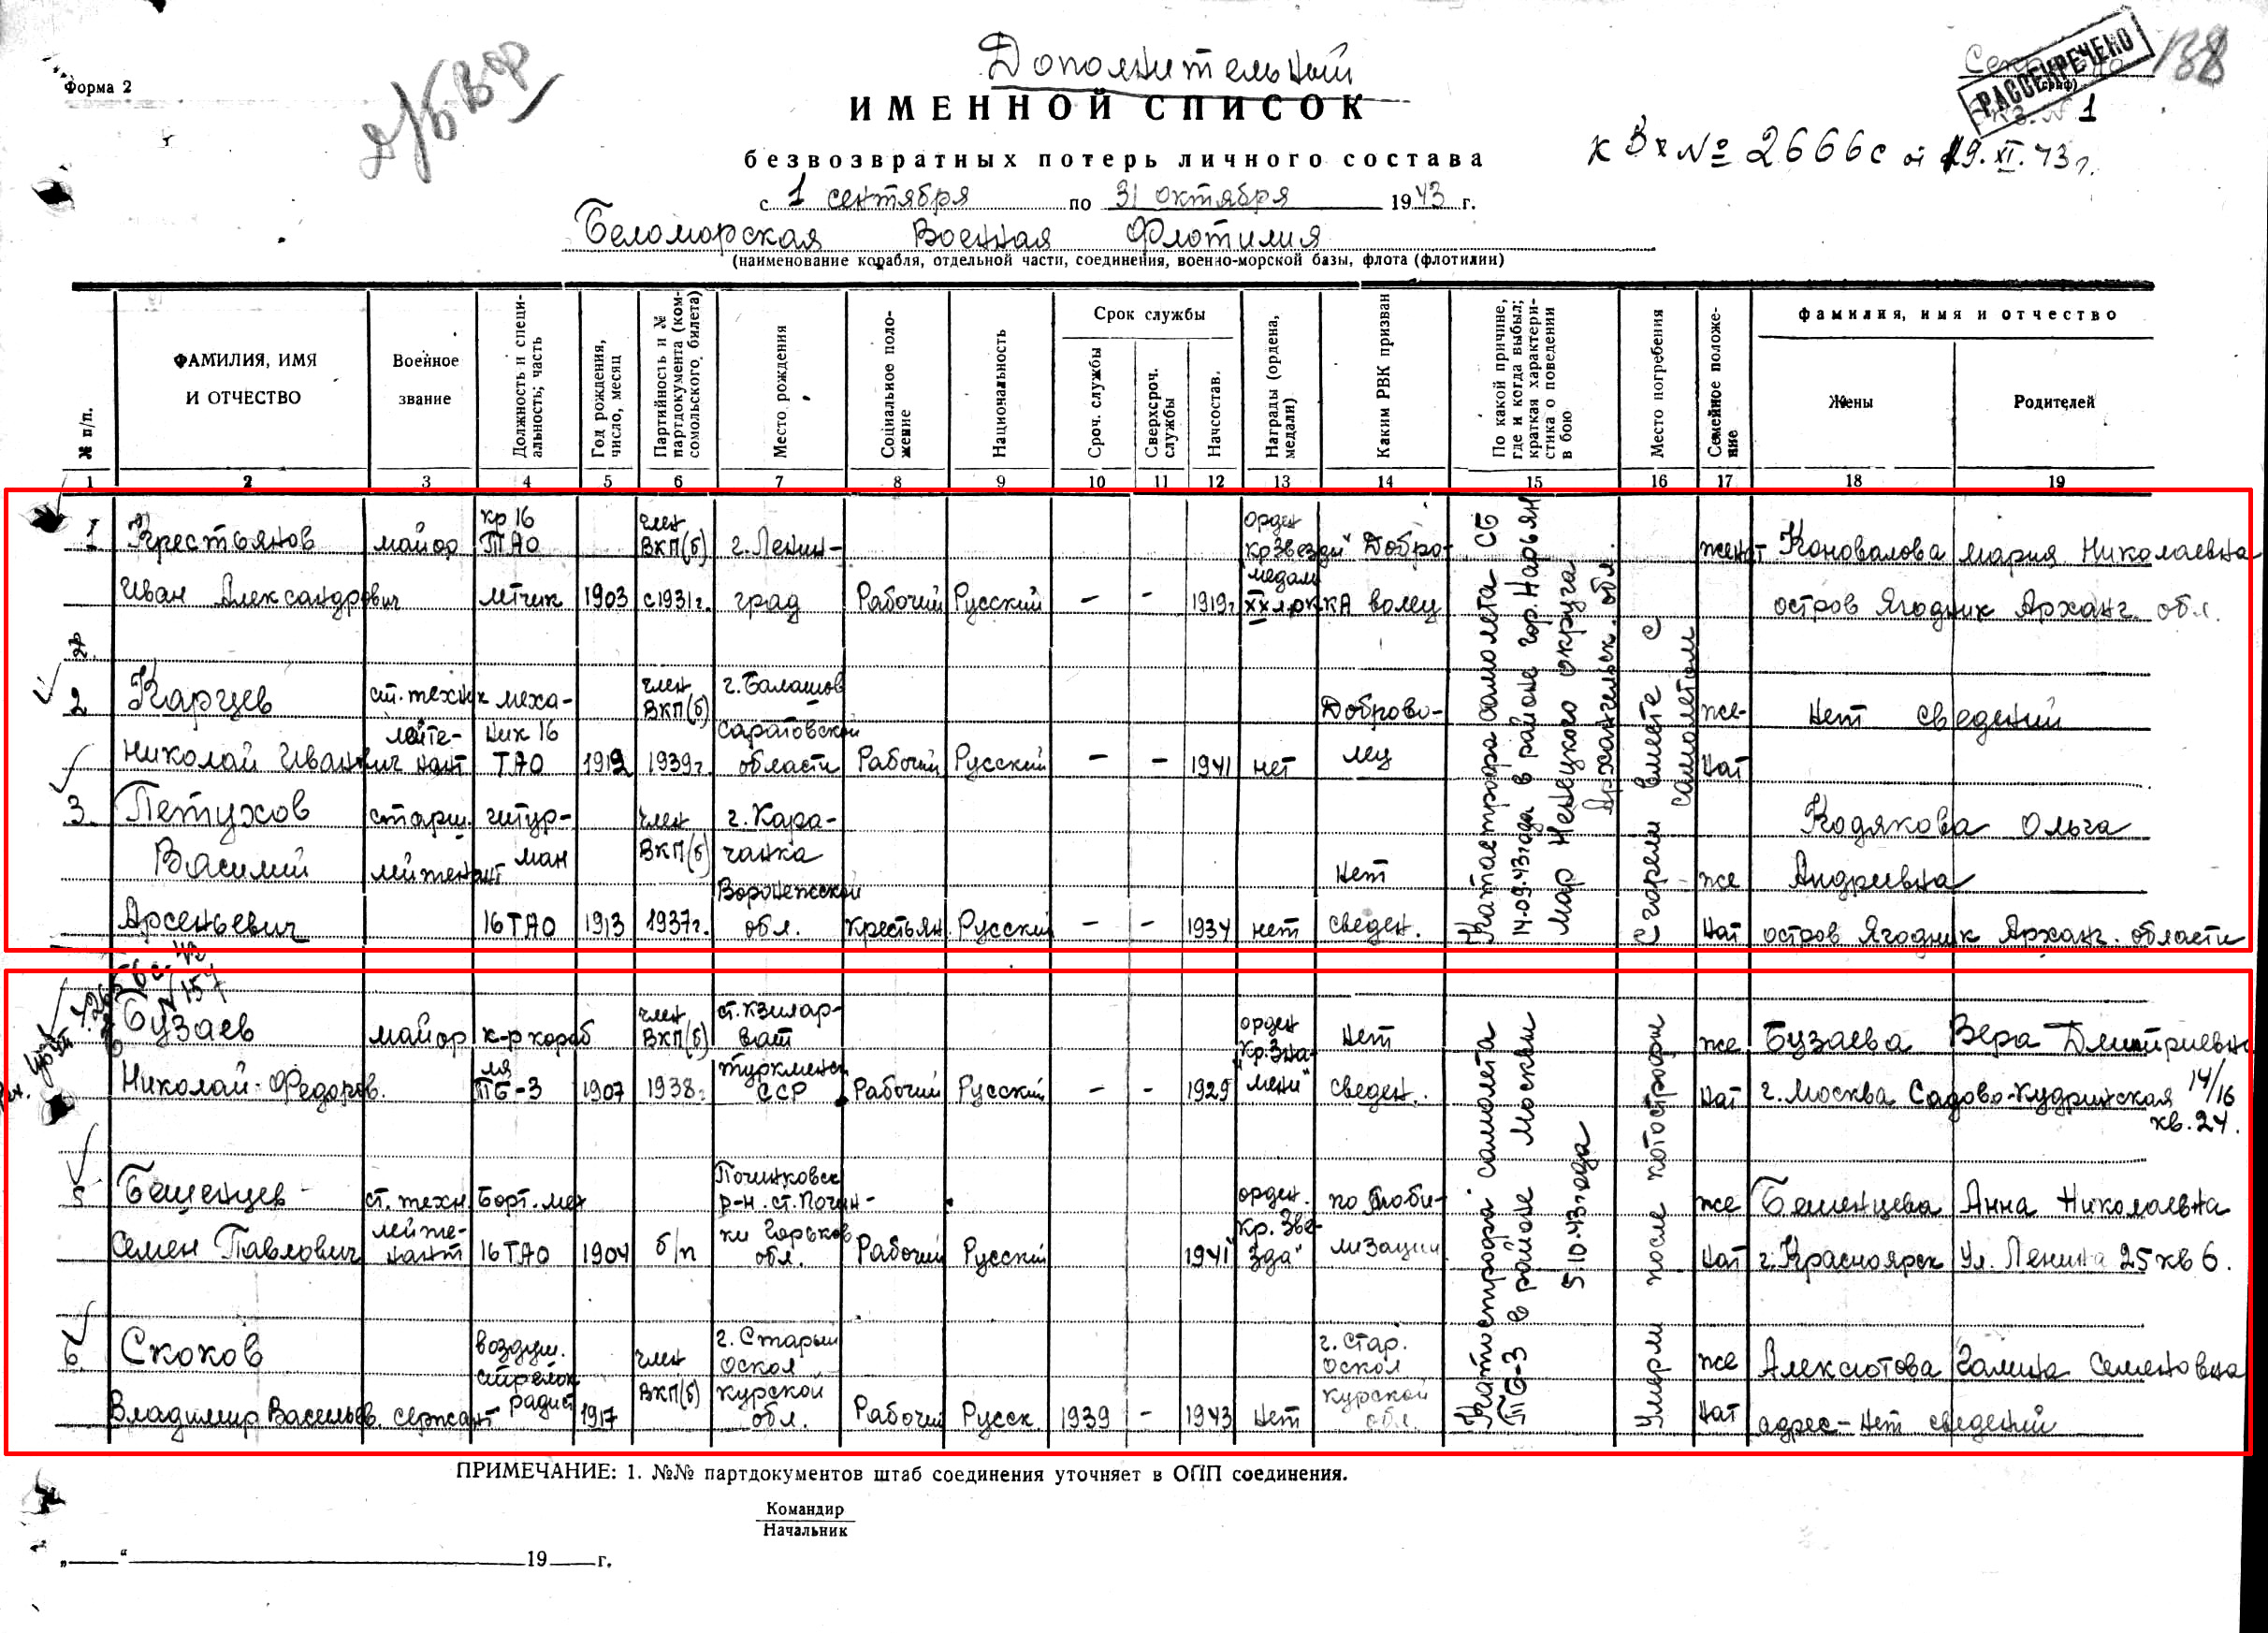 Форма 2
Дополнительный
Секретно
РАССЕКРЕЧЕНО
138
ИМЕННОЙ СПИСОК
безвозвратных потерь личного состава
к Вх № 2666с от 19.XI.43г.
с 1 сентября по 31 октября 1943 г.
Беломорская Военная Флотилия
(наименование корабля, отдельной части, соединения, военно-морской базы, флота (флотилии)
№ п/п.
ФАМИЛИЯ, ИМЯ
И ОТЧЕСТВО
Военное
звание
Должность и специ-
альность; часть
Год рождения,
число, месяц
Партийность и №
партдокумента (ком-
сомольского билета)
Место рождения
Социальное поло-
жение
Национальность
Срок службы
Сроч. службы
Сверхсроч.
службы
Начсостав.
Награды (ордена,
медали)
Каким РВК призван
По какой причине,
где и когда выбыл;
краткая характери-
стика о поведении
в бою
Место погребения
Семейное положе-
ние
фамилия, имя и отчество
Жены
Родителей
1 2 3 4 5 6 7 8 9 10 11 12 13 14 15 16 17 18 19
1 Крестьянов
Иван Александрович
майор
кр 16
ТАО
лётчик
1903
член
ВКП(б)
с 1931г.
г. Ленин-
град
Рабочий
Русский
— -
1919г
орден
"кр Звезды"
медаль
XX л РККА
Добро-
волец
Катастрофа самолета СБ
14-09-43 года в районе гор. Нарьян
Мар Ненецкого округа
Архангельск. обл.
Сгорели вместе с
самолетом
женат
Коновалова Мария Николаевна
остров Ягодник Арханг. обл.
2 Карцев
Николай Иванович
ст. техник
лейте-
нант
меха-
ник 16
ТАО
1912
член
ВКП(б)
1939г.
г. Балашов
Саратовской
области
Рабочий
Русский
— —
1941
нет
Доброво-
лец
же-
нат
Нет сведений
3. Петухов
Василий
Арсеньевич
старш.
лейтенант
штур-
ман
16 ТАО
1913
член
ВКП(б)
1937г.
г. Кара-
чанка
Воронежской
обл.
Крестьян.
Русский
— -
1934
нет
Нет
сведен.
же
нат
Кодякова Ольга
Андреевна
остров Ягодник Арханг. области
Бузаев
Николай Федоров.
майор
к-р кораб
ля
ТБ-3
1907
член
ВКП(б)
1938г
ст. Кзилар-
ват
туркменск
ССР
Рабочий
Русский
— -
1929
орден
"Кр. Зна-
мени"
Нет
сведен.
Катастрофа самолета
ТБ-3 в районе Москвы
5.10.43 года
Умерли после катострофы
же
нат
Бузаева Вера Дмитриевна
г. Москва Садово-Кудринская 14/16
кв. 24.
5 Бешенцев
Семен Павлович
ст. техн.
лейте-
нант
Борт. мех
16 ТАО
1904
б/п
Починковск
р-н. ст. Почин-
ки Горьков
обл.
Рабочий
Русский
1941
орден.
"Кр. Зве-
зда"
по моби-
лизации
же
нат
Бешенцева Анна Николаевна
г. Красноярск Ул. Ленина 25 кв 6.
6. Скоков
Владимир Васильев.
сержант
воздуш.
стрелок
радист
1917
член
ВКП(б)
г. Старый
Оскол
Курской
обл.
Рабочий
Русск
1939 - 1943
Нет
г. Стар.
Оскол
Курской
обл.
же
нат
Алексютова Галина Семеновна
адрес — нет сведений
ПРИМЕЧАНИЕ: 1. №№ партдокументов штаб соединения уточняет в ОПП соединения.
Командир
Начальник
„ “ 19 г.